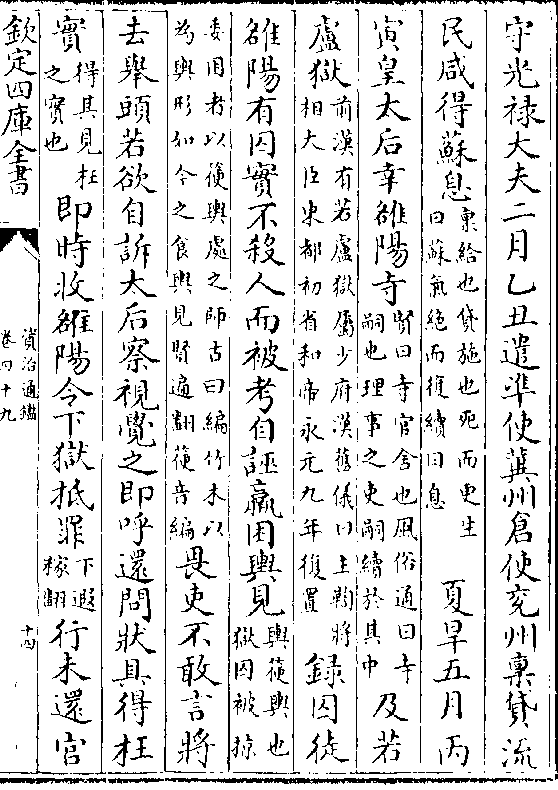 守光禄大夫二月乙丑遣凖使冀州倉使兖州稟貸流
民咸得蘇息稟給也貸施也死而更生曰蘇氣絶而復續曰息夏旱五月丙
寅皇太后幸雒陽寺賢曰寺官舍也風俗通曰寺嗣也理事之吏嗣續於其中及若
盧獄前漢有若盧獄屬少府漢舊儀曰主鞫將相大臣東都初省和帝永元九年復置錄囚徒
雒陽有囚實不殺人而被考自誣羸困輿見輿箯輿也獄囚被掠
委困者以箯輿處之師古曰編竹木以為輿形如今之食輿見賢遍翻箯音編畏吏不敢言將
去舉頭若欲自訴太后察視覺之即呼還問狀具得枉
實得其見枉之實也即時收雒陽令下獄抵罪下遐稼翻行未還官
欽定四庫全書
資治通鑑
卷四十九
十四